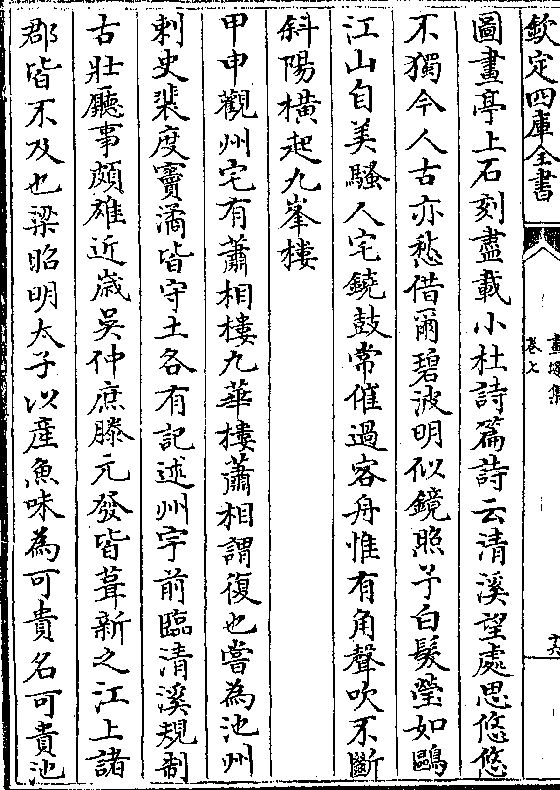 欽定四庫全書
畫墁集
卷七
圖畫亭上石刻盡載小杜詩篇詩云清溪望處思悠悠
不獨今人古亦愁借爾碧波明似鏡照予白髮瑩如鷗
江山自美騷人宅鐃鼓常催過客舟惟有角聲吹不斷
斜陽橫起九峯樓
甲申觀州宅有蕭相樓九華樓蕭相謂復也嘗為池州
刺史裴度竇潏皆守土各有記述州宇前臨清溪規制
古壯廳事頗雄近嵗吳仲庶滕元發皆葺新之江上諸
郡皆不及也梁昭明太子以產魚味為可貴名可貴池